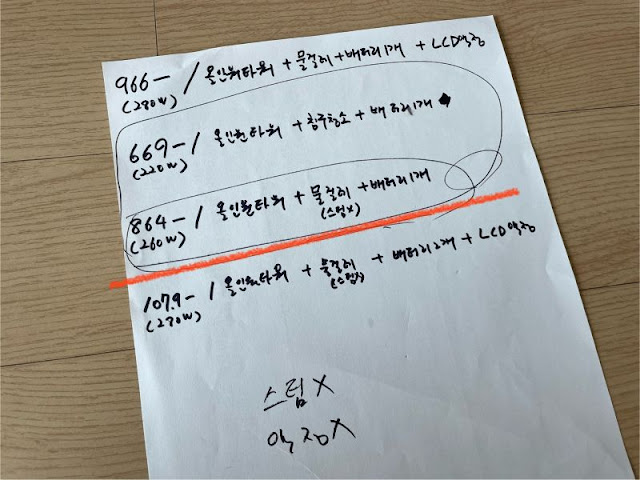 966- / 올인원타워 + 물걸레 + 배터리1개 + LCD액정
(280W)
669- / 올인원타워 + 침구청소 + 배터리1개
(220W)
864- / 올인원타워 + 물걸레 + 배터리1개
(260W) (스팀X)
107.9- / 올인원타워 + 물걸레 + 배터리2개 + LCD액정
(270W) (스팀X)
스팀X
액정X